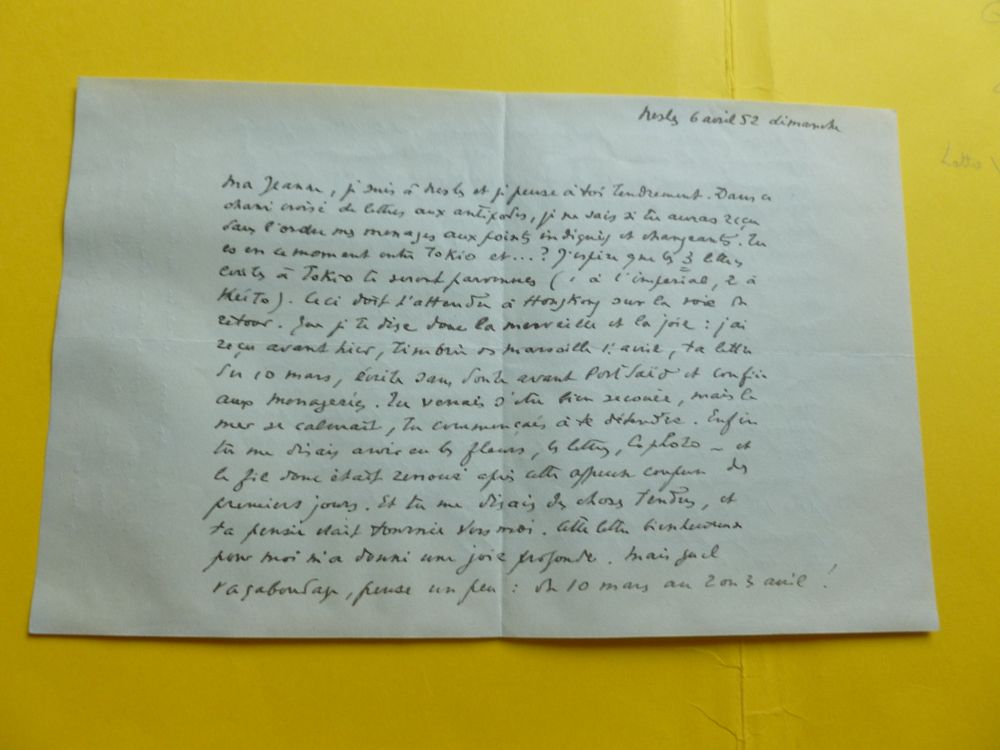 Nesles 6 avril 52 dimanche
Ma Jeanne, je suis à Nesles et je pense à toi tendrement. Dans ce
croisé de lettres aux antipodes, je ne sais si tu auras reçu
dans l'ordre mes messages aux points indiqués et changeants. Tu
es en ce moment entre Tokio et...? J'espère que les 3 lettres
écrites à Tokio te seront parvenues (1 à l'impérial, 2 à
Keito). Ceci doit t'attendre à Hongkong sur la voie du
retour. Que je te dise donc la merveille et la joie : j'ai
reçu avant hier, timbrée de Marseille 1er avril, ta lettre
du 10 mars, écrite sans doute avant Port Saïd et confiée
aux messageries. Tu venais d'être bien secouée, mais la
mer se calmait, tu commençais à te détendre. Enfin
tu me disais avoir eu les fleurs, les lettres, la photo - et
le fil donc était renoué après cette coupure des
premiers jours. Et tu me disais des choses tendres, et
ta pensée était tournée vers moi. Cette lettre bienheureuse
pour moi m'a donné une joie profonde. Mais quel
vagabondage, pense un peu : du 10 mars au 2 ou 3 avril !